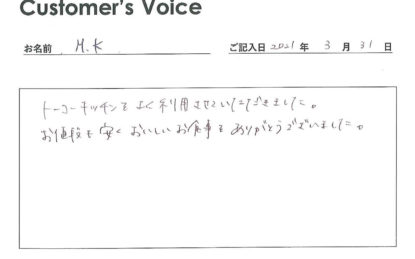 Customer's Voice
お名前 M.K ご記入日 2021 年 3 月 31 日
トーコーキッチンをよく利用させていただきました。
お値段も安くおいしいお食事をありがとうございました。